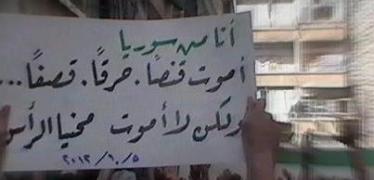 أنا من سوريا
أموت قنصاً. حرقاً. قصفاً...
ولكن لا أموت محنيا الرأس
٢٠١٢/١٠/٥